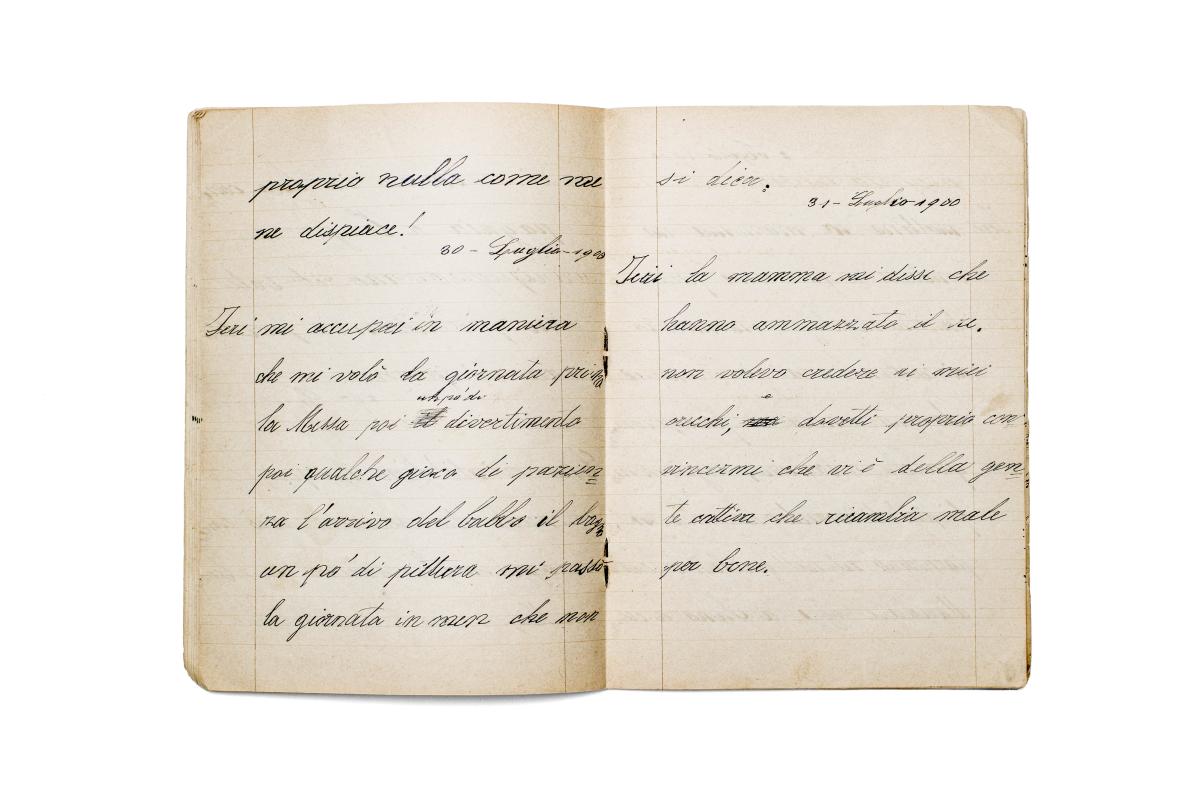 propria nulla come me
ne dispiace!
30 - Luglio - 1900
Ieri mi occupai in maniera
che mi volò la giornata prima
la Messa poi un pó di divertimento
poi qualche gioco di pazien=
za l'arrivo del babbo il bagno
un pó di pittura mi passò
la giornata in men che non
si dica.
31 - Luglio 1900
Ieri la mamma mi disse che
hanno ammazzato il re.
non volevo credere ai miei
orecchi, e dovetti proprio con
vincermi che vi è della gen=
te cattiva che ricambia male
per bene.